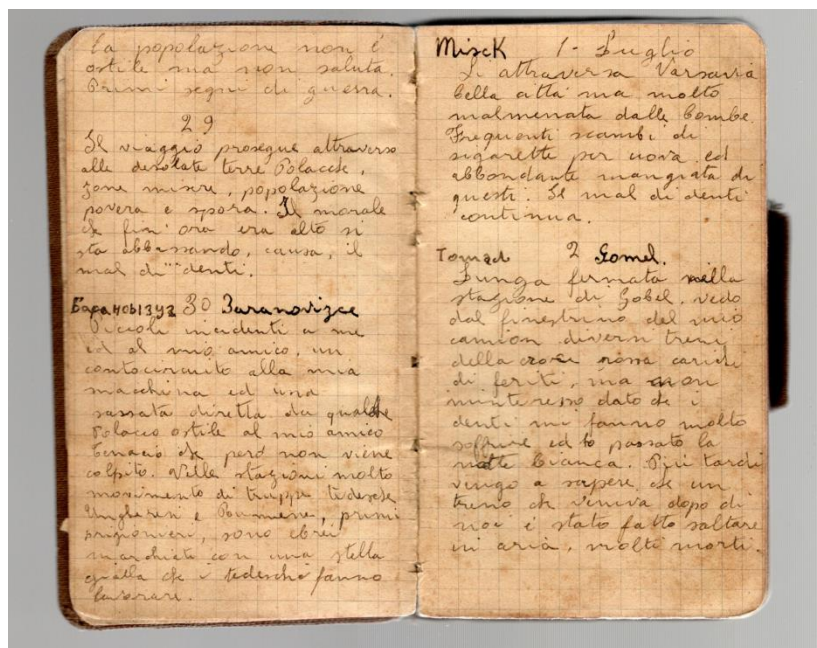 la popolazione non è
ostile ma non saluta.
Primi segni di guerra.
29
Il viaggio prosegue attraverso
alle desolate terre Polacche,
zone misere, popolazione
povera e spora. Il morale
che fin' ora era alto si
sta abbassando, causa, il
mal di denti.
Барановызуг 30 Baranovizce
Piccoli incidenti a me
ed al mio amico, un
contocircuito alla mia
macchina ed una
sassata diretta da qualche
Polacco ostile al mio amico
che però non viene
colpito. Nelle stazioni molto
movimento di truppe tedesche
Ungheresi e Rumene, primi
prigionieri, sono ebrei
marchiati con una stella
gialla che i tedeschi fanno
lavorare.
Misck 1- Luglio
Si attraversa Varsavia
bella città ma molto
malmenata dalle bombe.
Frequenti scambi di
sigarette per uova ed
abbondante mangiata di
questi. Il mal di denti
continua.
2 Gomel.
Lunga fermata nella
stazione di Gobel. vedo
dal finestrino del mio
camion diversi treni
della croce rossa carichi
di feriti, ma non
m'interesso dato che i
denti mi fanno molto
soffrire ed ho passato la
notte bianca. Più tardi
vengo a sapere che un
treno che veniva dopo di
noi è stato fatto saltare
in aria, molti morti.